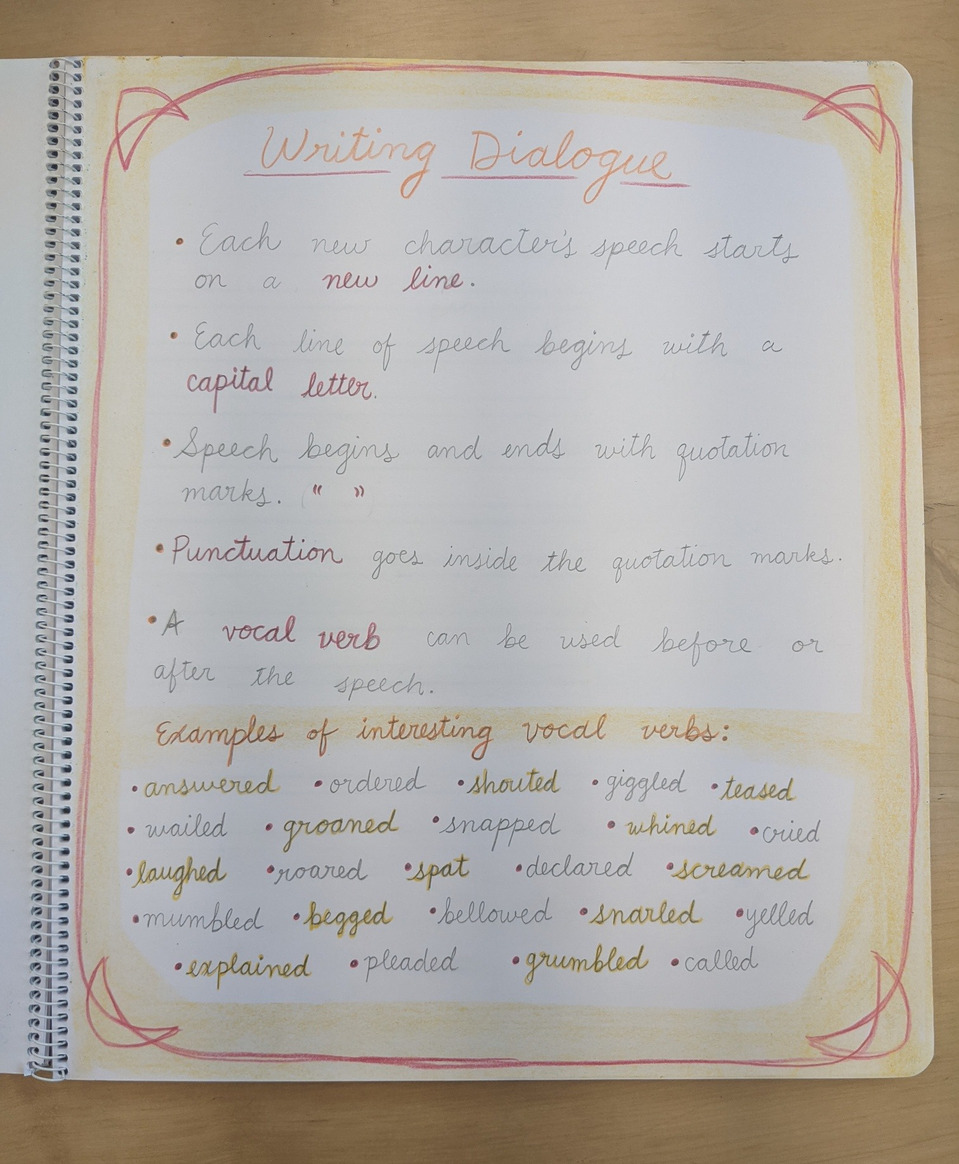 Writing Dialogue
• Each new character's speech starts
on a new line.
• Each line of speech begins with a
capital letter.
• Speech begins and ends with quotation
marks. (" ")
• Punctuation goes inside the quotation marks.
• A vocal verb can be used before or
after the speech.
Examples of interesting vocal verbs:
• answered • ordered • shouted • giggled • teased
• wailed • groaned • snapped • whined • cried
• laughed • roared • spat • declared • screamed
• mumbled • begged • bellowed • snarled • yelled
• explained • pleaded • grumbled • called